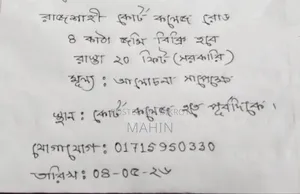 রাজশাহী কোর্ট কলেজ রোড
৪ কাঠা জমি বিক্রি হবে
রাস্তা ২০ ফিট (সরকারি)
মূল্য : আলোচনা সাপেক্ষে
স্থান : কোর্ট কলেজ হতে পূর্বদিকে ।
MAHIN
যোগাযোগ : 01715950330
তারিখ : 08-05-২৬